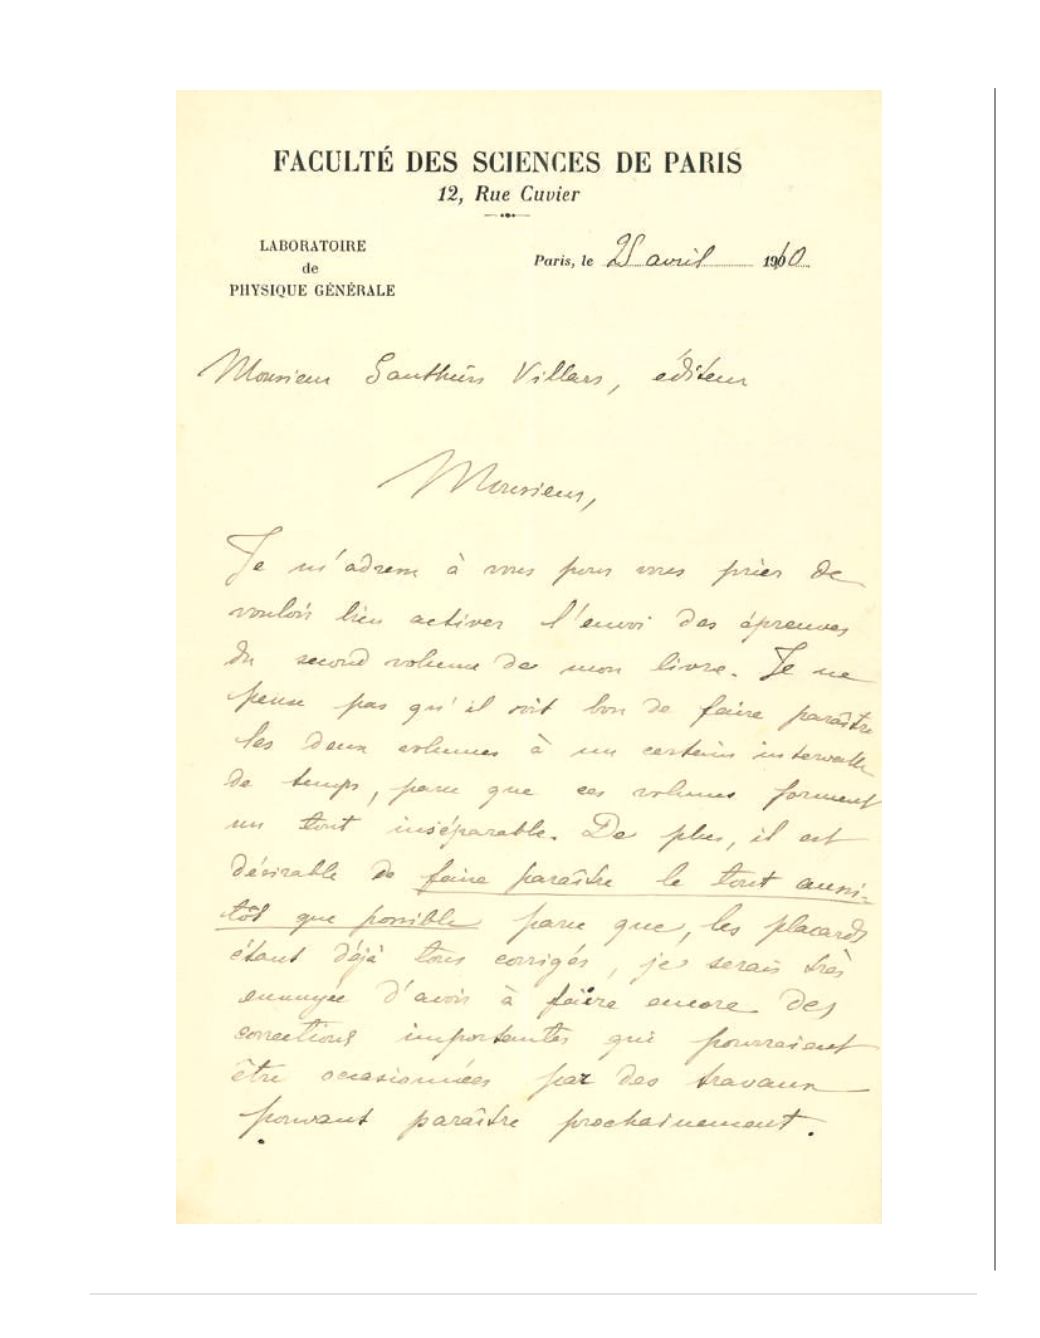 FACULTÉ DES SCIENCES DE PARIS
12, Rue Cuvier
LABORATOIRE
de
PHYSIQUE GÉNÉRALE
Paris, le 25 avril 1910
Monsieur Gauthier Villars, éditeur
Monsieur,
Je m'adresse à vous pour vous prier de
vouloir bien activer l'envoi des épreuves
du second volume de mon livre. Je ne
pense pas qu'il soit bon de faire paraître
les deux volumes à un certain intervalle
de temps, parce que ces volumes forment
un tout inséparable. De plus, il est
désirable de faire paraître le tout aussi-
tôt que possible parce que, les placards
étant déjà tous corrigés, je serais très
ennuyée d'avoir à faire encore des
corrections importantes qui pourraient
être occasionnées par des travaux
pouvant paraître prochainement.